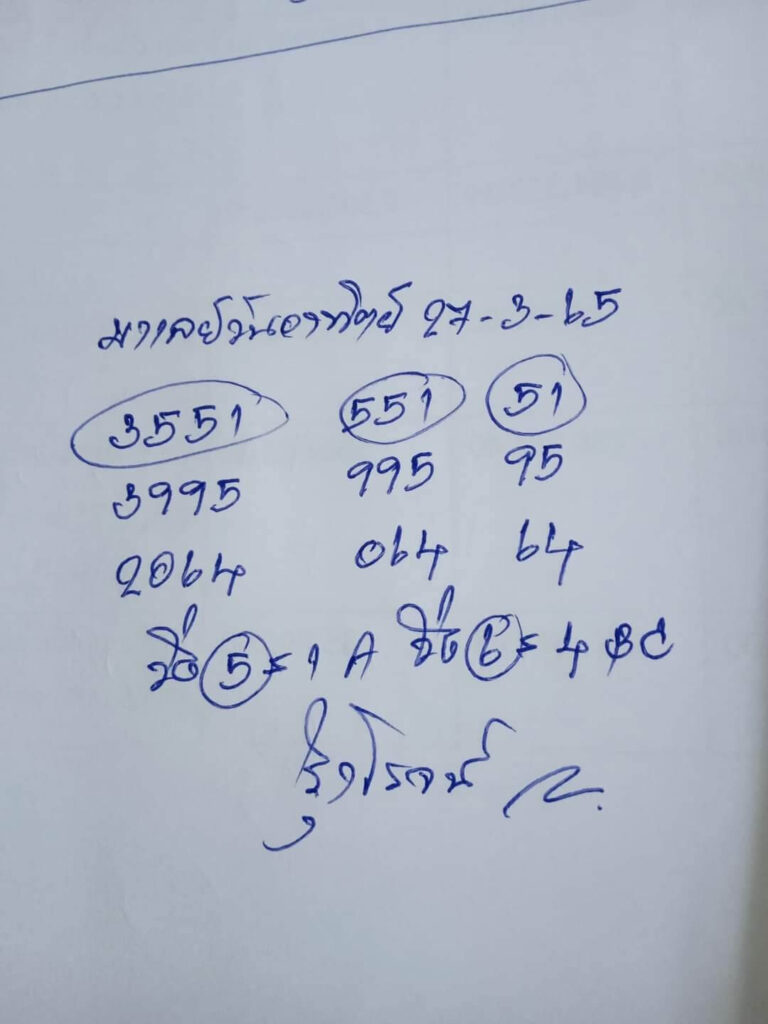 มาเลย์วันอาทิตย์ 27-3-65
3551 551 51
3995 995 95
2064 064 64
5 = 1 A 6 = 4 BC